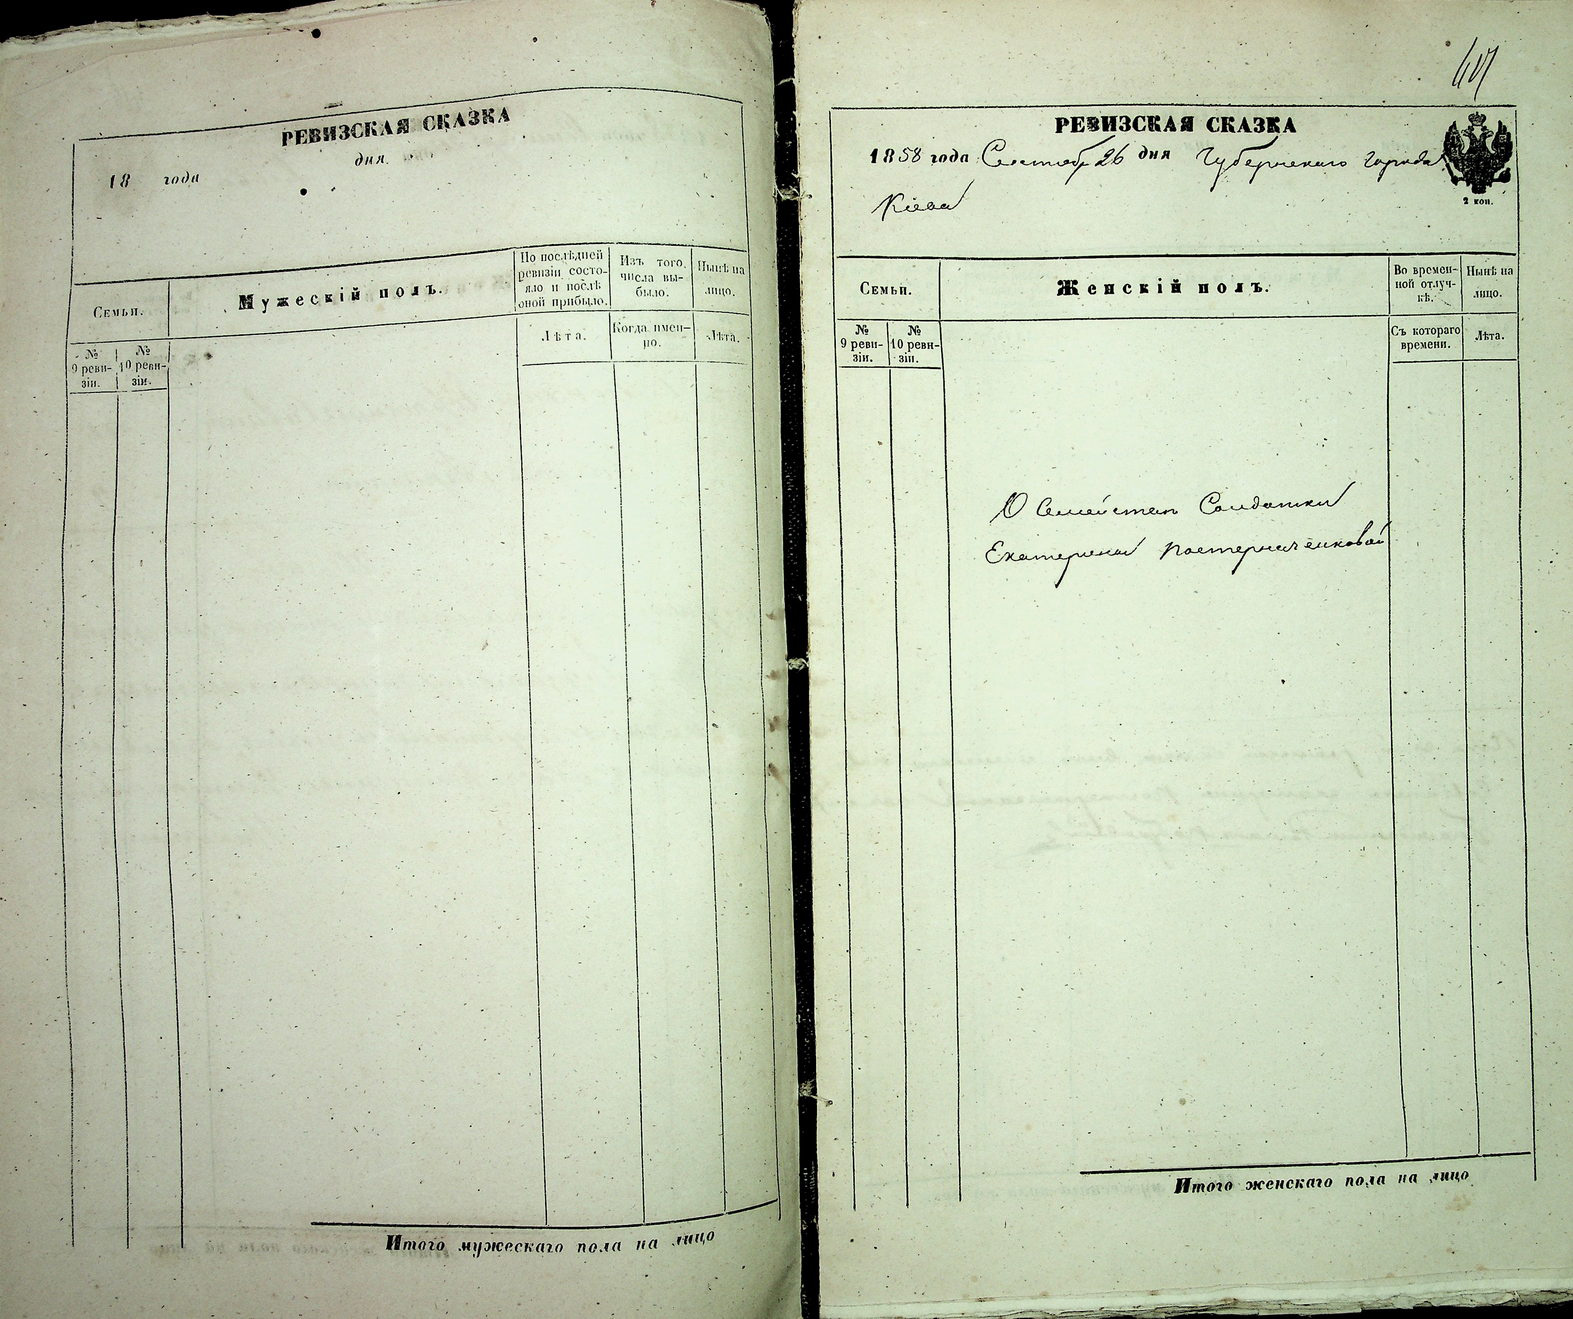 РЕВИЗСКАЯ СКАЗКА
дня
18 года
Семьи.
Мужескій полъ.
По послѣдней ревизіи состо-
яло и послѣ оной прибыло.
Изъ того числа вы-
было.
Нынѣ на лицо.
№ 9 реви-
зіи.
№ 10 реви-
зіи.
Лѣта.
Когда имен-
но.
Лѣта.
Итого мужескаго пола на лицо
РЕВИЗСКАЯ СКАЗКА
1858 года Сентяб 26 дня Губернскаго города
Кіева
2 коп.
Семьи.
Женскій полъ.
Во времен-
ной отлуч-
кѣ.
Нынѣ на лицо.
№ 9 реви-
зіи.
№ 10 реви-
зіи.
Съ котораго времени.
Лѣта.
О Семействѣ Солдатки
Екатерины Пастерначенковой
Итого женскаго пола на лицо